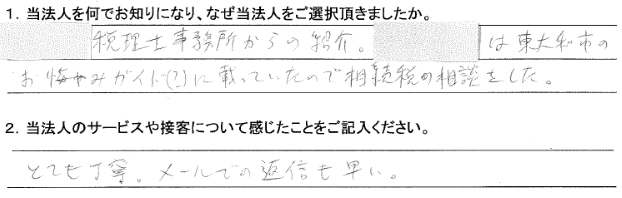 1．当法人を何でお知りになり、なぜ当法人をご選択頂きましたか。
税理士事務所からの紹介。 は東大和市の
お悔やみガイド(?)に載っていたので相続税の相談をした。
2．当法人のサービスや接客について感じたことをご記入ください。
とても丁寧。メールでの返信も早い。